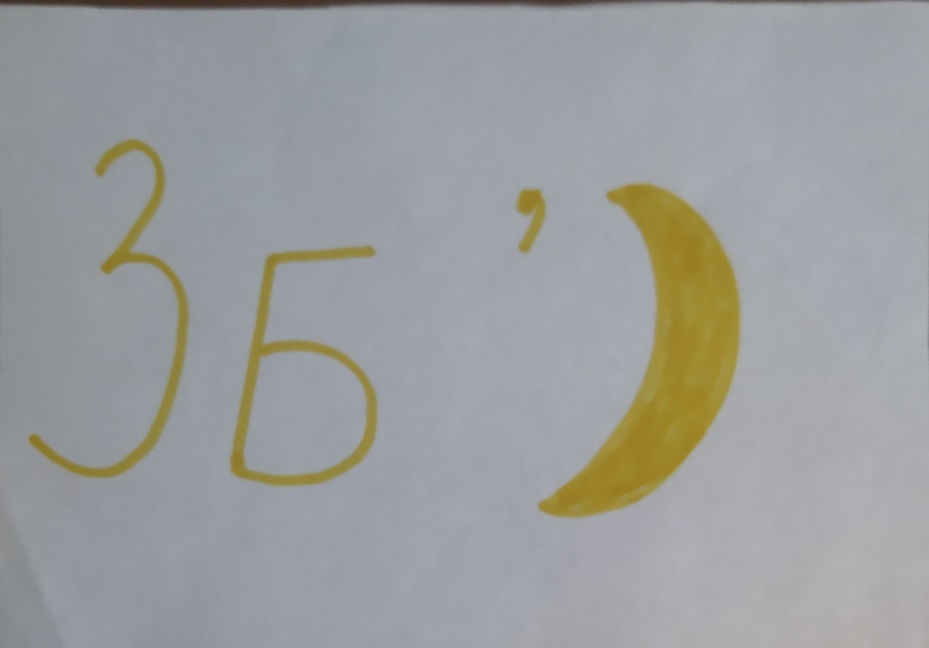 ЗБ '